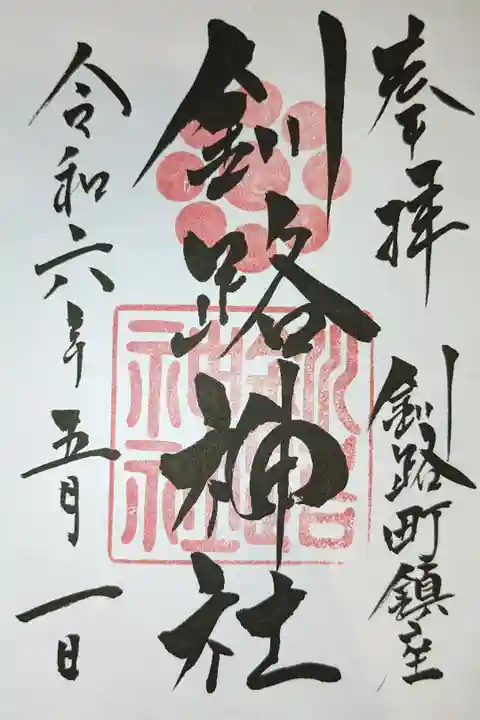 奉拝
釧路町鎮座
釧路神社
釧路神社
令和六年五月一日